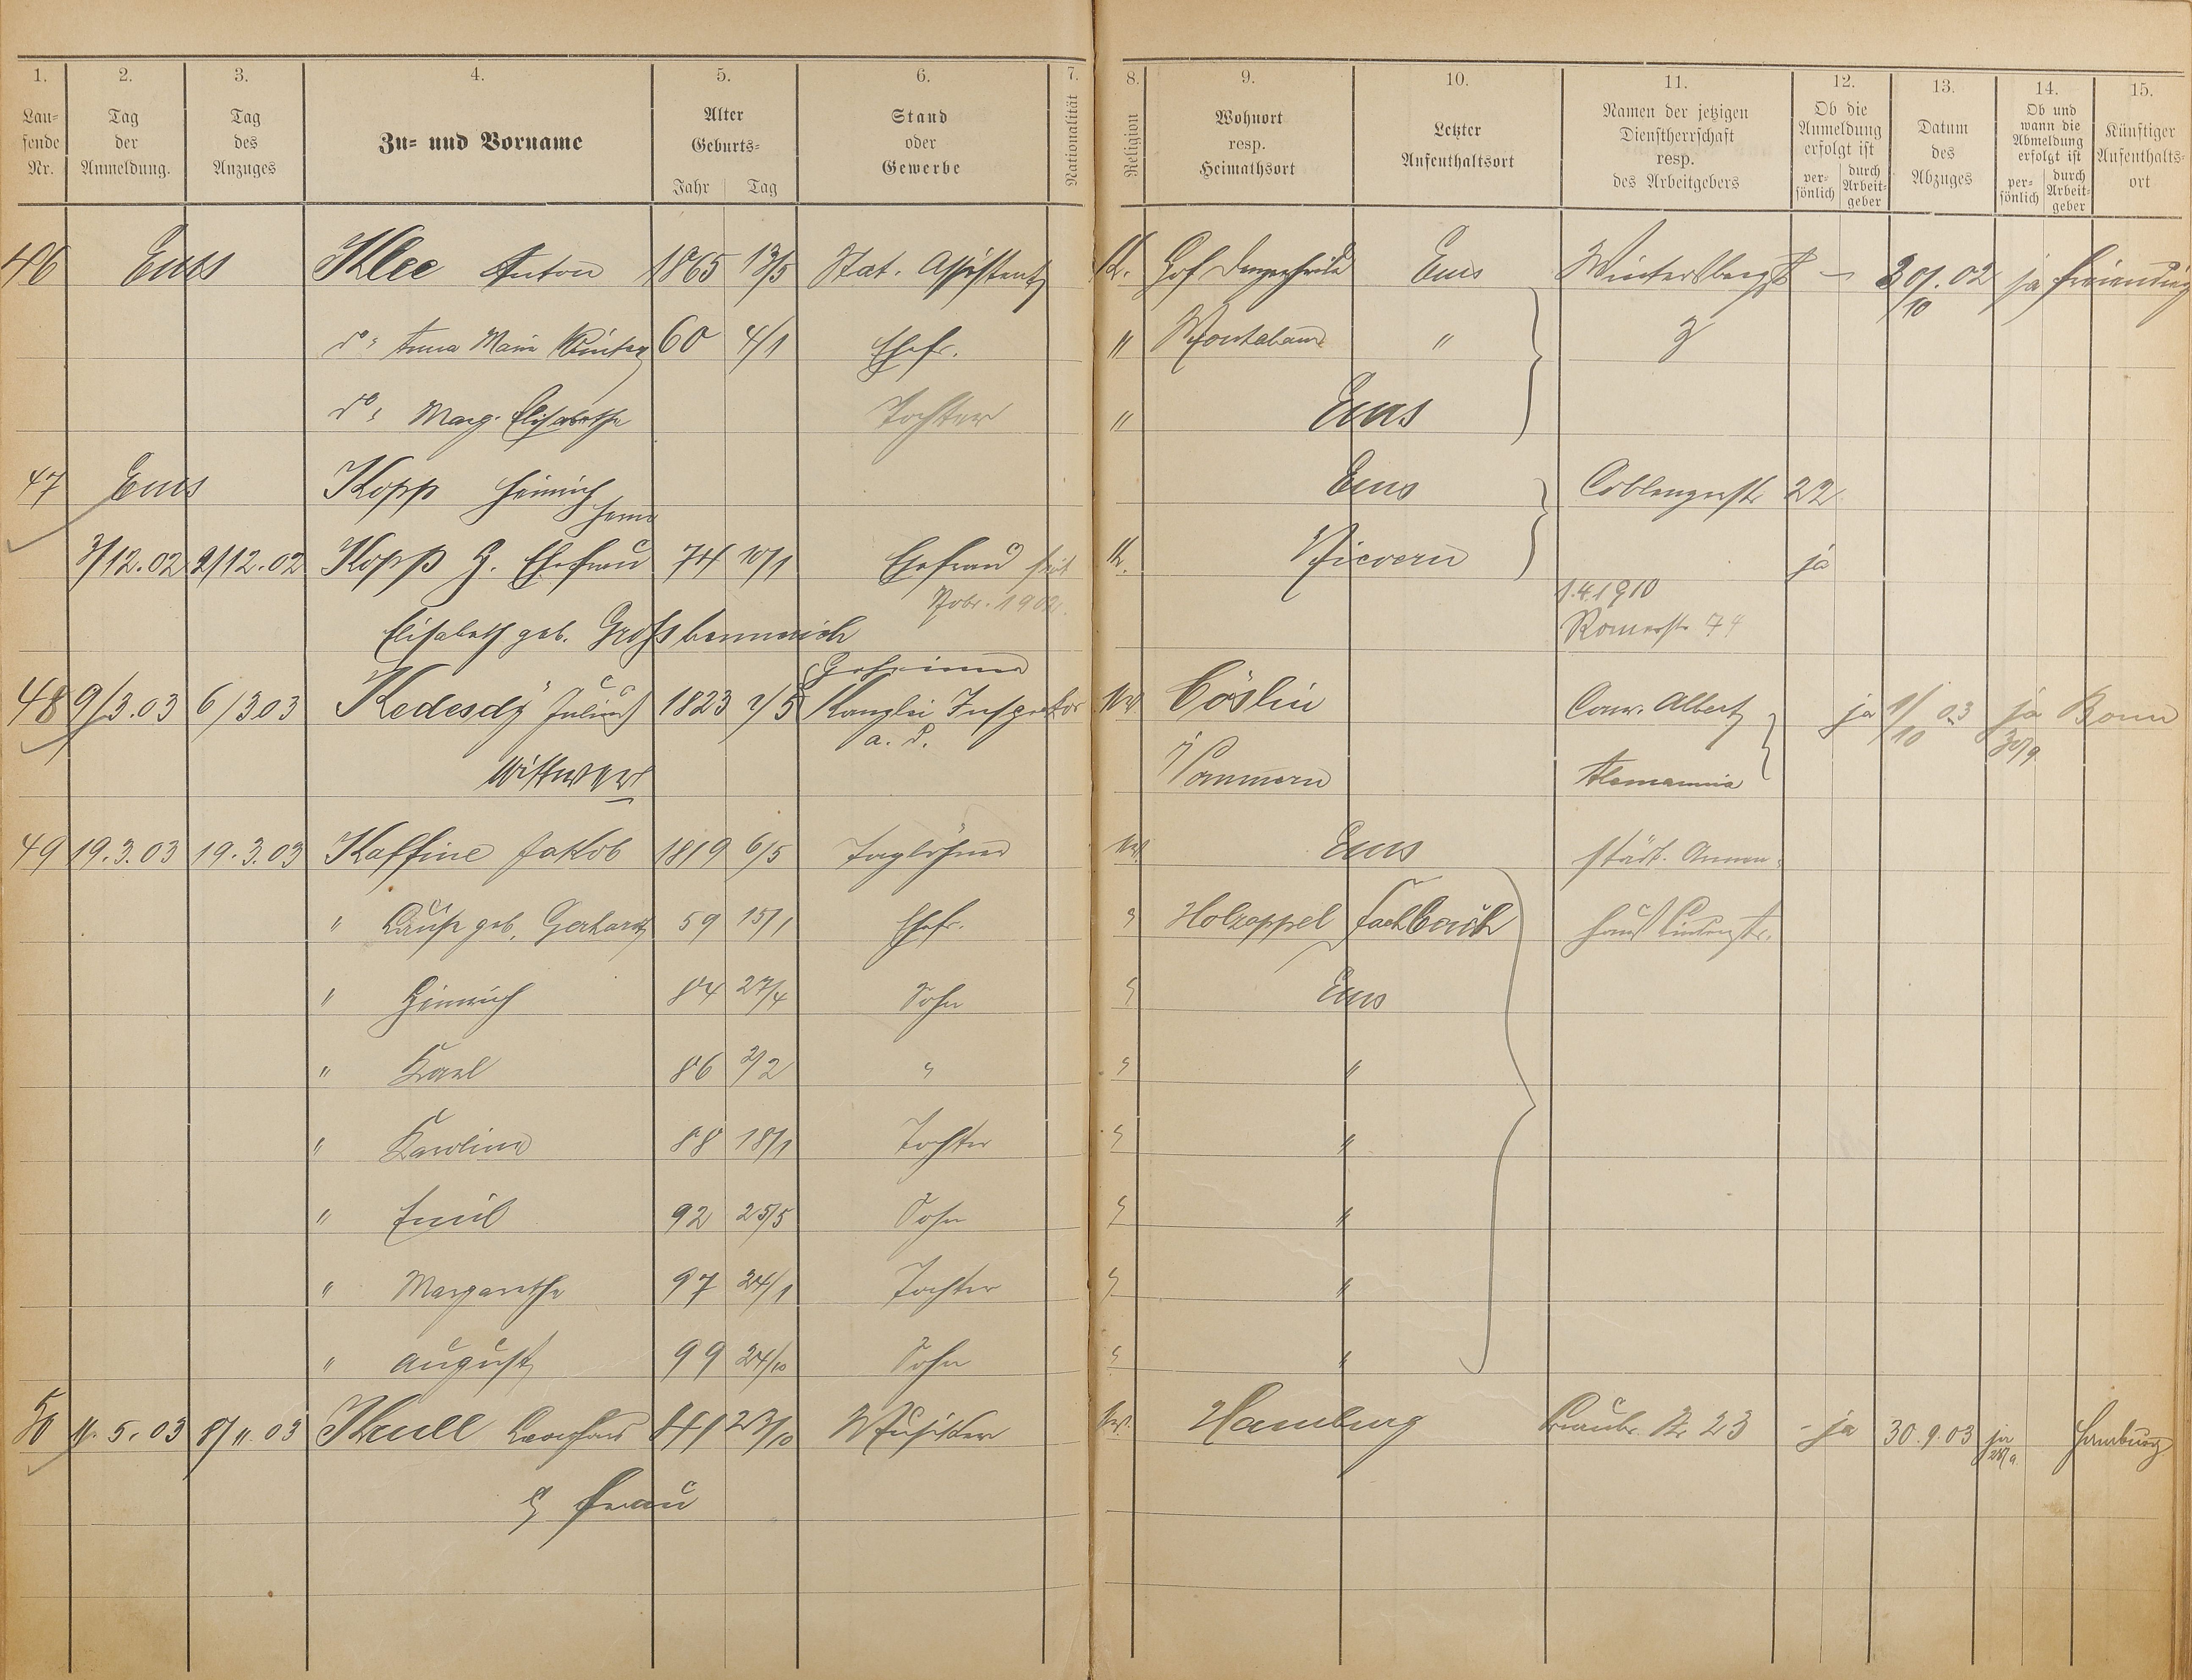 1. 2. 3. 4. 5. 6. 7. 8. 9. 10. 11. 12. 13. 14. 15.
Lau=
fende
Nr.
Tag
der
Anmeldung.
Tag
des
Anzuges
Zu= und Vorname
Alter
Geburts=
Jahr Tag
Stand
oder
Gewerbe
Nationalität
Religion
Wohnort
resp.
Heimathsort
Letzter
Aufenthaltsort
Namen der jetzigen
Dienstherrschaft
resp.
des Arbeitgebers
Ob die
Anmeldung
erfolgt ist
per=
sönlich
durch
Arbeit=
geber
Datum
des
Abzuges
Ob und
wann die
Abmeldung
erfolgt ist
per=
sönlich
durch
Arbeit=
geber
Künftiger
Aufenthalts=
ort
46 Ems Klee Anton 1865 13/5 Stat. Assistent K. Hof Ems 30/10.02 ja
do Anna Maria 60 4/1 Ehefr. " Montabaur "
do Marg. Elisabethe Tochter " Ems
47 Ems Kopp Heinrich Ems Coblenzerstr 22
3/12.02 2/12.02 Kopp H. Ehefrau 74 10/1 Ehefrau seit K. Nievern ja
Nobr. 1902. 1.4.1910
Elisabeth geb. Römerstr 74
Geheimer
48 9/3.03 6/3 03 Kedesdy Julius 1823 2/5 Kanzlei Inspektor Cöslin Albert ja 1/10 03 ja Bonn
a. D. 30/9
Wittwer Pommern Alemannia
49 19.3.03 19.3.03 Kaffine Jakob 1819 6/5 Taglöhner Ems städt. Armen=
" geb. Gerhardt 59 15/1 Ehefr. " Holzappel Fachbach haus
" Heinrich 84 27/4 Sohn " Ems
" Karl 86 2/2 " " "
" Karolina 88 18/1 Tochter " "
" Emil 92 25/5 Sohn " "
" Margarethe 97 24/1 Tochter " "
" August 99 24/10 Sohn " "
50 11. 5. 03 8/11. 03 Krull 23/10 Musiker Hamburg 23 - ja 30.9.03 ja Hamburg
& Frau